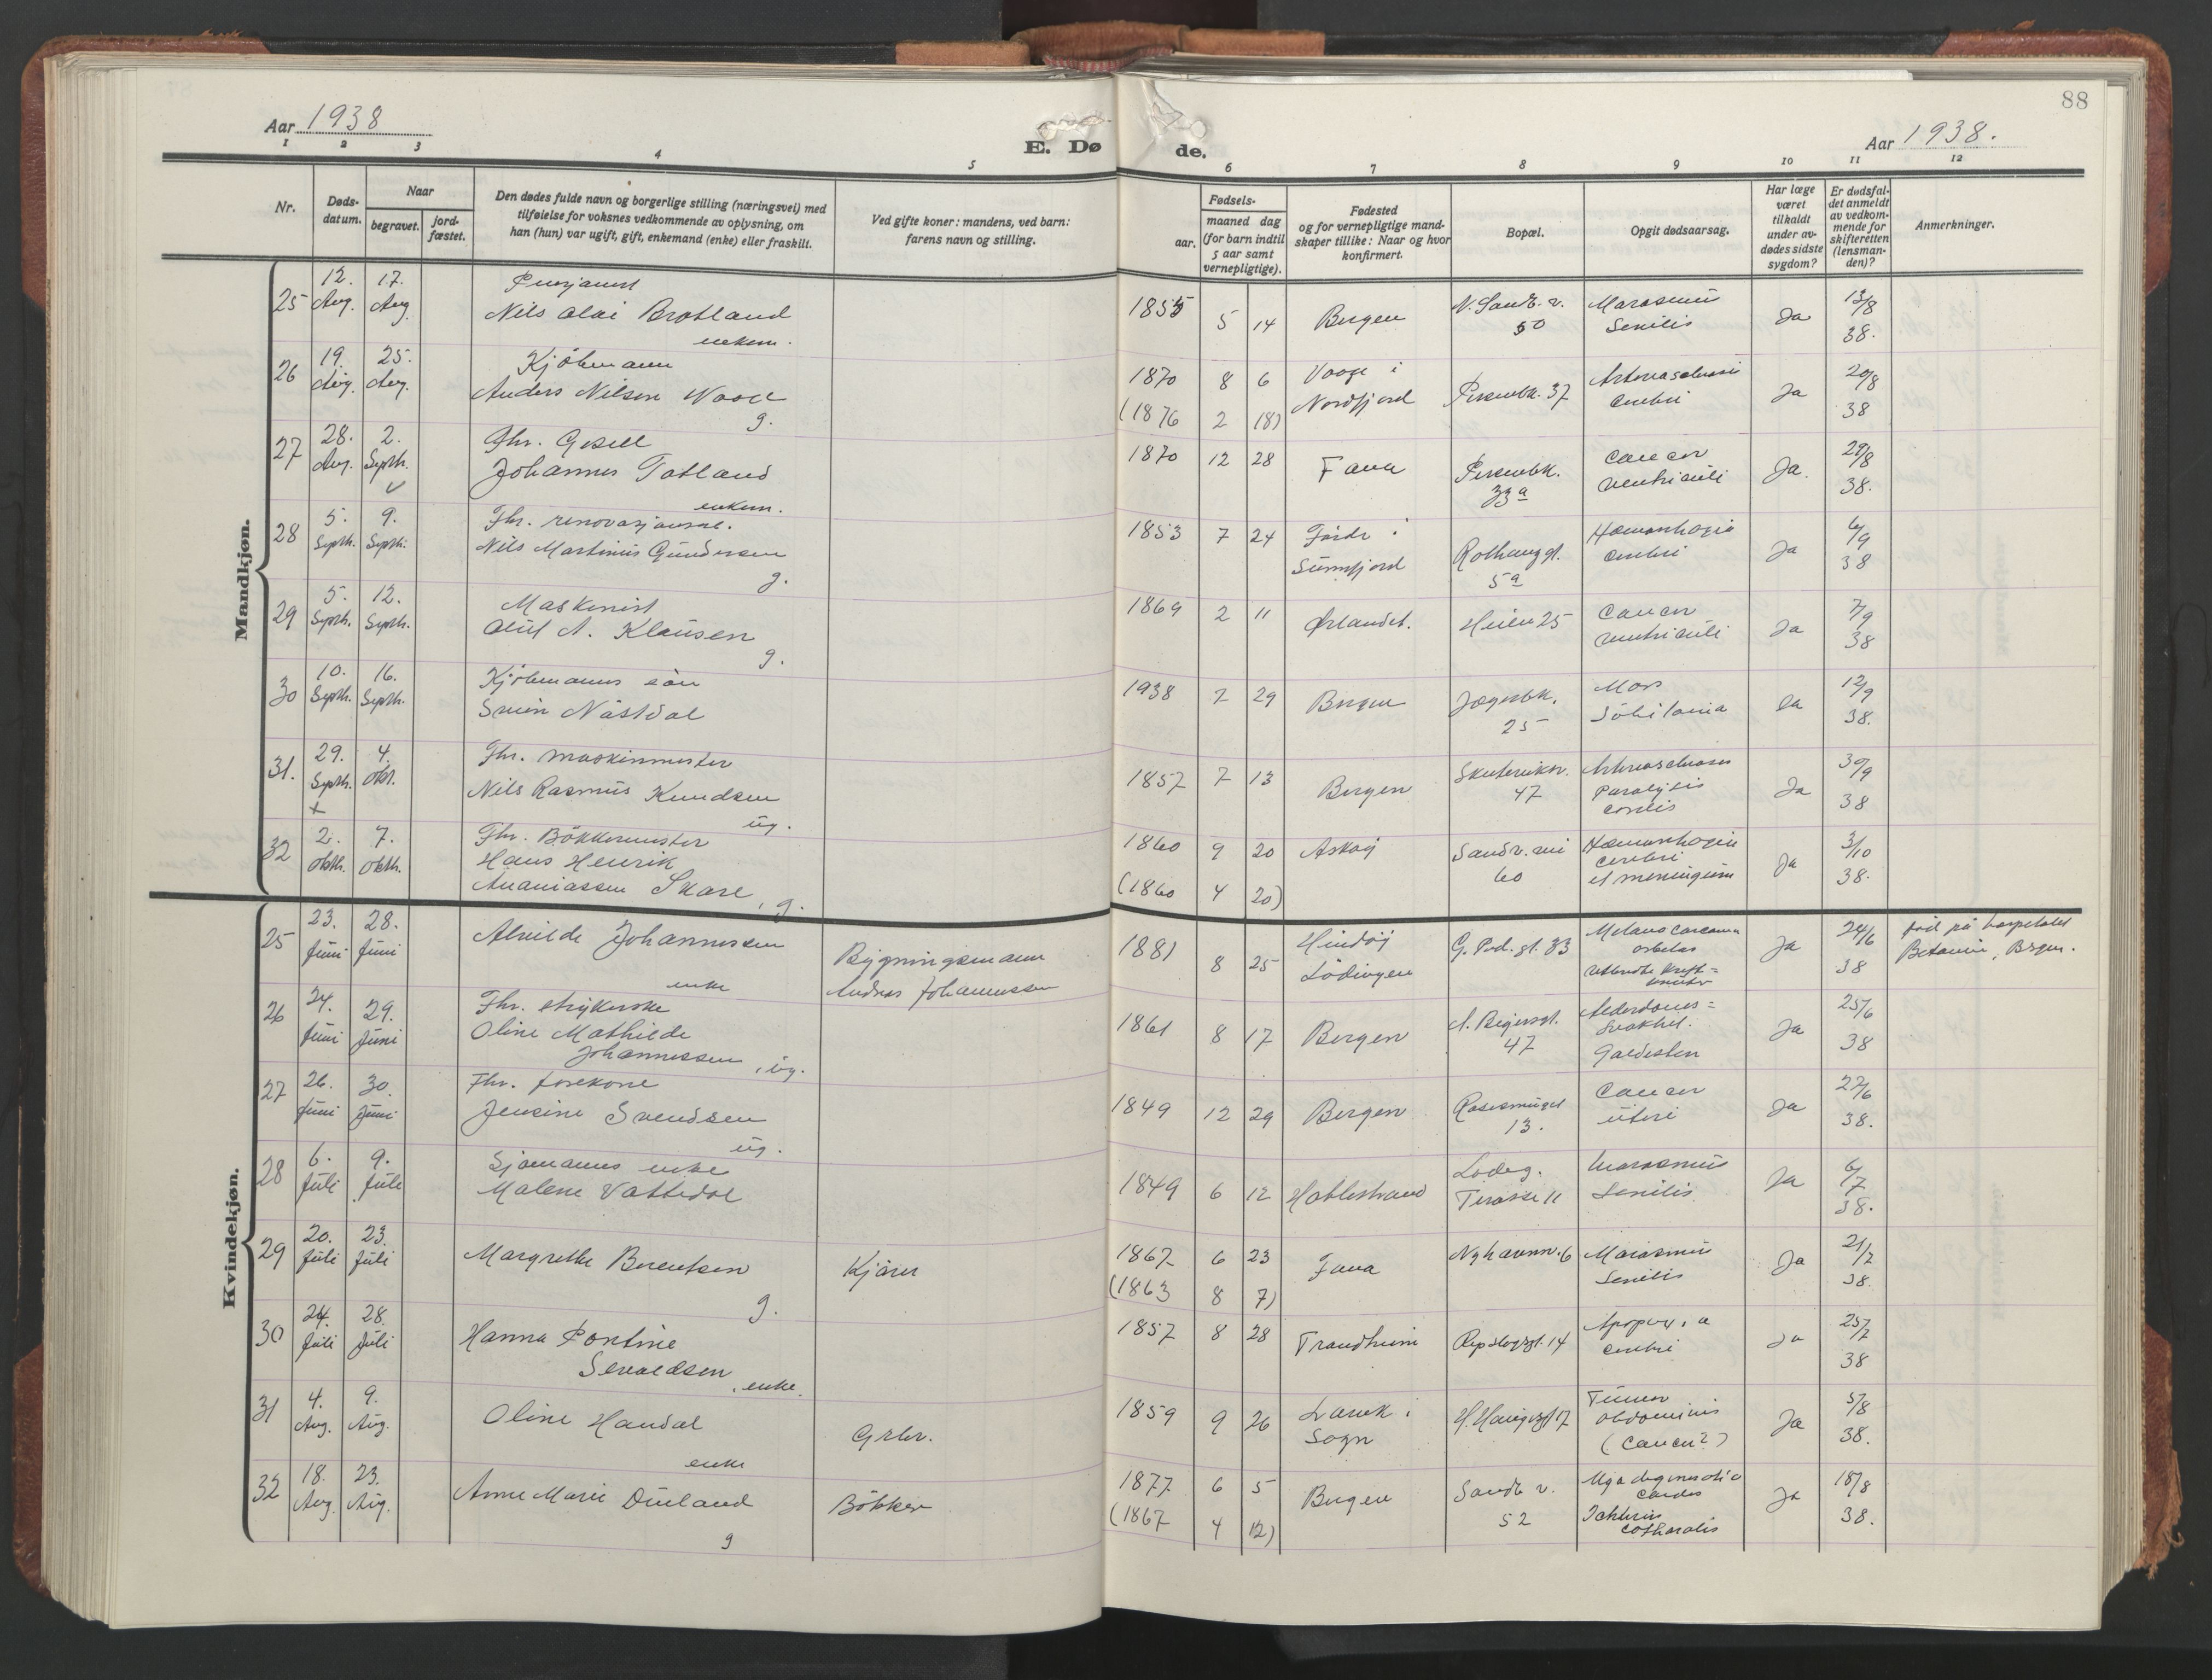 88
Aar 1938
E. Dø de.
Aar 1938.
1 2 3 4 5 6 7 8 9 10 11 12
Nr.
Døds-datum.
Naar
begravet.
jord-fæstet.
Den dødes fulde navn og borgerlige stilling (næringsvei) med
tilføielse for voksnes vedkommende av oplysning, om
han (hun) var ugift, gift, enkemand (enke) eller fraskilt.
Ved gifte koner: mandens, ved barn:
farens navn og stilling.
Fødsels-
aar.
maaned dag
(for barn indtil
5 aar samt
vernepligtige).
Fødested
og for vernepligtige mand-
skaper tillike: Naar og hvor
konfirmert.
Bopæl.
Opgit dødsaarsag.
Har læge
været
tilkaldt
under av-
dødes sidste
sygdom?
Er dødsfal-
det anmeldt
av vedkom-
mende for
skifteretten
(lensman-
den)?
Anmerkninger.
Mandkjøn.
25 12. Aug. 17. Aug.
Nils Olai Brotland
enkem.
1855 5 14 Bergen
50
Marasmus
Senilis
Ja 13/8 38.
26 19. Aug. 25. Aug.
Kjöbmann
Anders Nilsen
g.
1870 8 6
(1876 2 18)
i
Nordfjord
37
cerebri
Ja 20/8 38
27 28. Aug. 2. Septb.
Fhv. Gesell
Johannes Totland
enkem.
1870 12 28 Fana
33a
Cancer
ventriculi
Ja. 29/8 38.
28 5. Septb. 9. Septb.
Fhv.
Nils Martinus Gundersen
g.
1853 7 24 Förde i
Sunnfjord
5a
Hæmorrhagia
cerebri
Ja 6/9 38
29 5. Septb. 12. Septb.
Maskinist
Oluf A. Klausen
g.
1869 2 11 Ørlandet.
Heien 25
Cancer
ventriculi
Ja 7/9 38
30 10. Septb. 16. Septb.
Kjöbmanns sön
Svein Nästdal
1938 7 29 Bergen
25
Mors
Ja 12/9 38.
31. 29. Septb. 4. Okt.
Fhv. maskinmester
Nils Rasmus Knudsen
ug.
1857 7 13 Bergen
47
Paralysis
cordis
Ja 30/9 38
32 2. Oktb. 7. Oktb.
Fhv. Bökkermester
Hans Henrik
Ananiassen Skare, g.
1860 9 20 Askøy
(1860 4 20)
Sandv. vei
60
Hæmorrhagia
cerebri
et meningium
Ja 3/10 38.
Kvindekjøn.
25 23. Juni 28. Juni
Alvilde Johannessen
enke
Bygningsmann
Andreas Johannessen
1881 8 25 Hindøy
Lödingen
G. Pod. gt. 33
Ja 24/6 38
Betanien, Bergen.
26 24. Juni 29. Juni
Fhv. strykerske
Oline Mathilde
Johannessen, ug.
1861 8 17 Bergen
47
Alderdoms=
svakhet.
Galdesten
Ja 25/6 38
27 26. Juni 30. Juni
Fhv.
Jensine Svendsen
ug.
1849 12 29 Bergen
13.
Cancer
uteri
Ja 27/6 38.
28 6. Juli 9. Juli
Sjømanns enke
Malene Vattedal
1849 6 12
Ladeg.
Terasse 11
Marasmus
Senilis
Ja 6/7 38.
29 20. Juli 23. Juli
Margrethe Berentsen
g.
Kjörer
1867 6 23 Fana
(1863 8 7)
Nyhavnv. 6
Marasmus
Senilis
Ja 21/7 38.
30 24. Juli 28. Juli
Hanna Pontine
Sevaldsen, enke.
1857 8 28 Trondheim
Repslagergt. 14
cerebri
Ja 25/7 38
31 4. Aug. 9. Aug.
Oline Haudal
enke
Grbr.
1859 9 26 i
Sogn
H. Haugesgt 17
Tumor
abdominis
(Cancer?)
Ja 5/8 38.
32 18. Aug. 23. Aug.
Anne Marie Dueland
g
Bökker
1877 6 5 Bergen
(1867 4 12)
Sandv. v.
52
cordis
Ja 18/8 38.